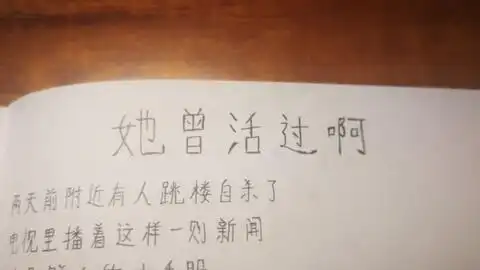 她曾活过啊
两天前附近有人跳楼自杀了
电视里播着这样一则新闻